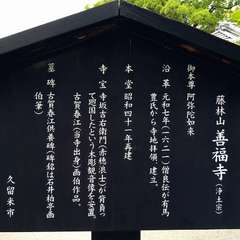 藤林山 善福寺 (浄土宗)
御本尊 阿弥陀如来
沿革 元和七年(一六二一)僧良伝が有馬
豊氏から寺地拝領、建立。
本堂 昭和四十一年再建
寺宝 寺坂吉右衛門(赤穂浪士)が背負っ
て廻国したという木彫観音像を安置。
古賀春江(当寺出身)画伯作品。
墓碑 古賀春江供養碑(碑銘は石井柏亭画
伯筆)
久留米市